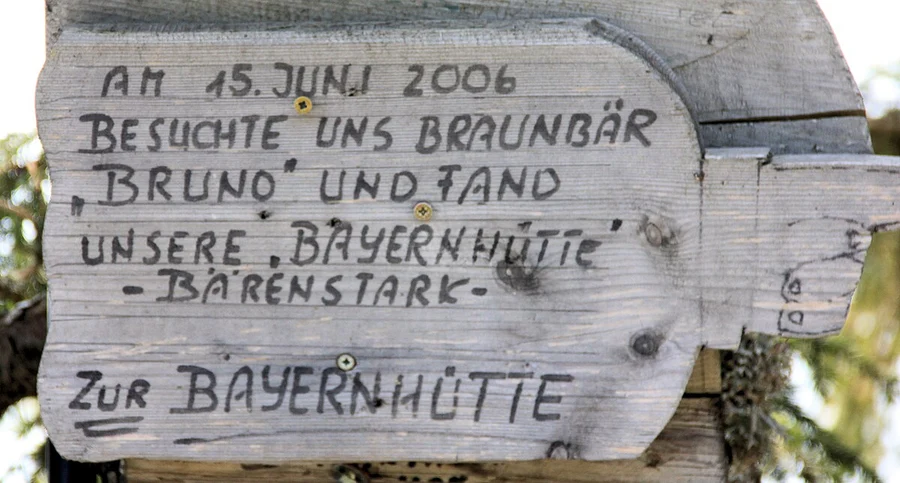 AM 15. JUNI 2006
BESUCHTE UNS BRAUNBÄR
„BRUNO“ UND FAND
UNSERE „BAYERNHÜTTE“
-BÄRENSTARK-
ZUR BAYERNHÜTTE